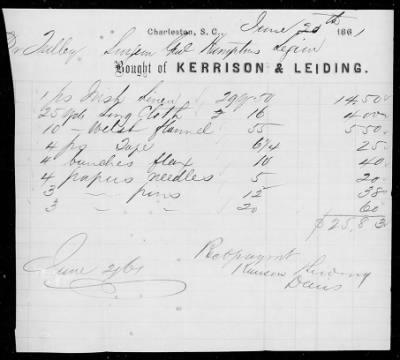 Charleston, S. C., June 20th 1861
Dr Talley Surgeon Hamptons Legion
Bought of KERRISON & LEIDING.
1 ps Irish Linen 29 @ 50 14.50
25 yds Long Cloth 16 4.00
10 - Welsh flannel 55 5.50
4 ps Tape 6 1/4 25
4 bunches flax 10 40
4 papers needles 5 20
3 " pins 12 38
3 " " 20 60
$25.83
June 2/61 Recd paymt
Kerrison & Leiding